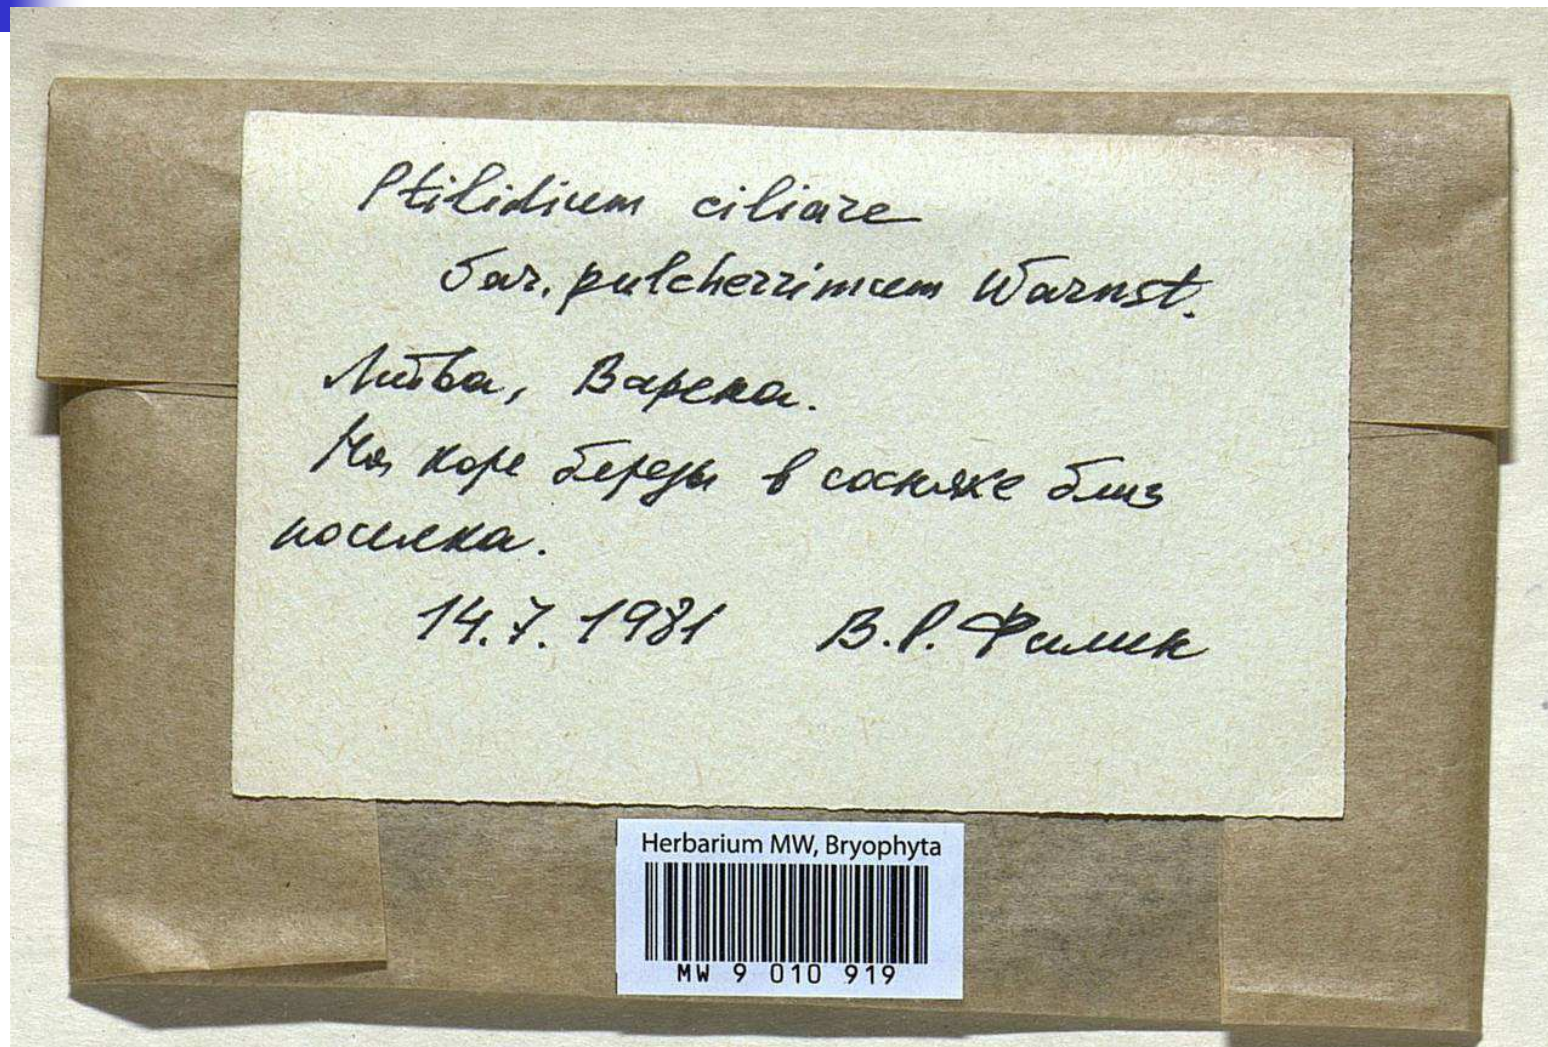 Ptilidium ciliare
var. pulcherrimum Warnst.
Литва, Варена.
На коре березы в сосняке близ
поселка.
14.7.1981 В.Р. Филин
Herbarium MW, Bryophyta
MW 9 010 919